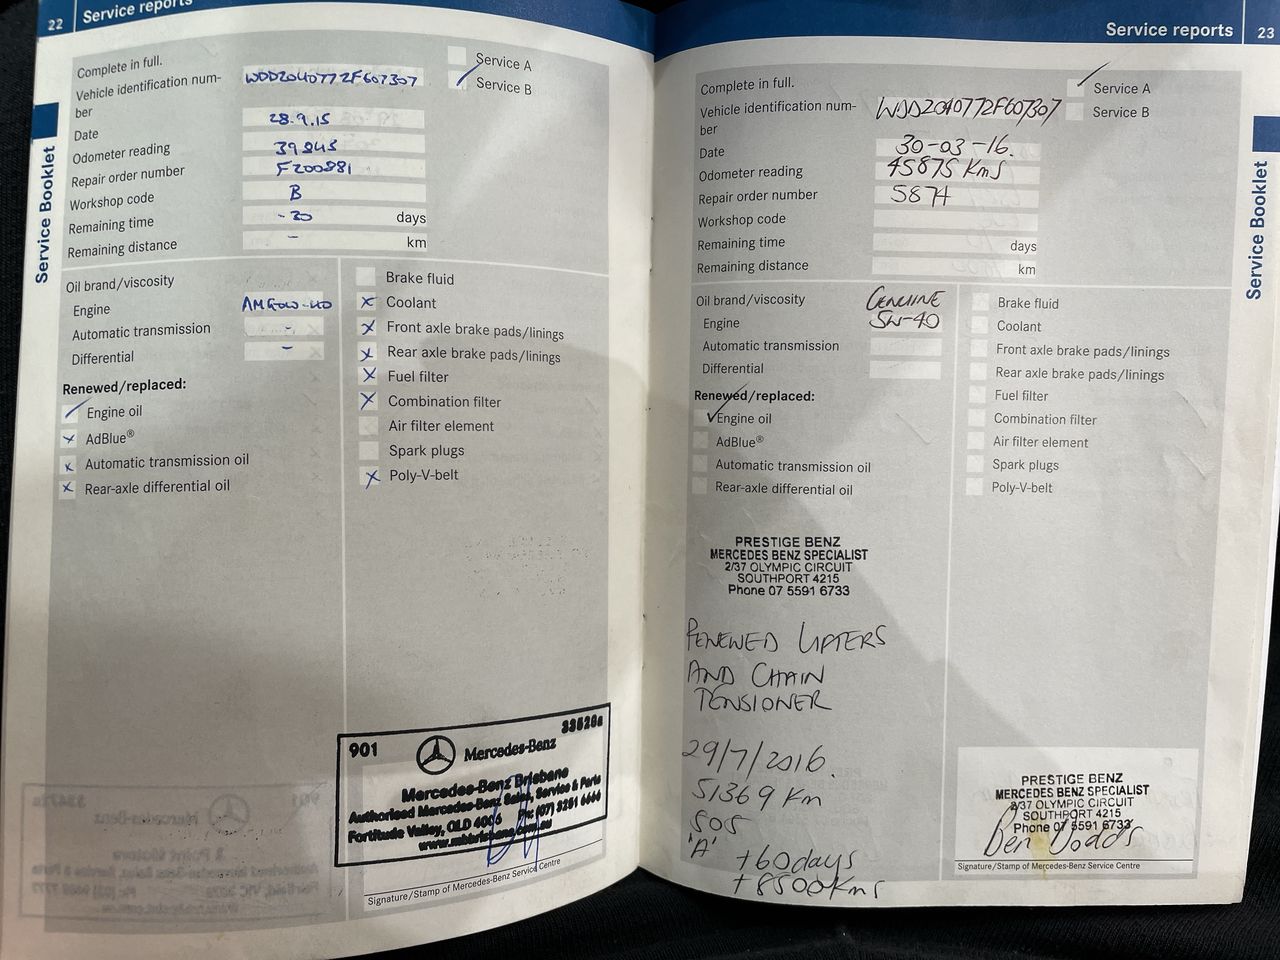 22 Service reports
Complete in full.
Service A
Service B
Vehicle identification num-
ber
WDD2040772F607307
Date 28.9.15
Odometer reading 39843
Repair order number F200881
Workshop code B
Remaining time -30 days
Remaining distance - km
Oil brand/viscosity
Engine AMG0W-40
Automatic transmission -
Differential -
Renewed/replaced:
Engine oil
AdBlue®
Automatic transmission oil
Rear-axle differential oil
Brake fluid
Coolant
Front axle brake pads/linings
Rear axle brake pads/linings
Fuel filter
Combination filter
Air filter element
Spark plugs
Poly-V-belt
901
Mercedes-Benz
Mercedes-Benz Brisbane
Authorised Mercedes-Benz Sales, Service & Parts
Fortitude Valley, QLD 4006 Ph: (07) 3251 6666
www.mbbrisbane.com.au
Signature/Stamp of Mercedes-Benz Service Centre
Service Booklet
Service reports 23
Complete in full.
Service A
Service B
Vehicle identification num-
ber
WDD2040772F607307
Date 30-03-16.
Odometer reading 45875 Kms
Repair order number 5874
Workshop code
Remaining time days
Remaining distance km
Oil brand/viscosity GENUINE
Engine 5W-40
Automatic transmission
Differential
Renewed/replaced:
Engine oil
AdBlue®
Automatic transmission oil
Rear-axle differential oil
Brake fluid
Coolant
Front axle brake pads/linings
Rear axle brake pads/linings
Fuel filter
Combination filter
Air filter element
Spark plugs
Poly-V-belt
PRESTIGE BENZ
MERCEDES BENZ SPECIALIST
2/37 OLYMPIC CIRCUIT
SOUTHPORT 4215
Phone 07 5591 6733
RENEWED LIFTERS
AND CHAIN
TENSIONER
29/7/2016.
51369 Km
SOS
'A'
+60days
+8500Kms
PRESTIGE BENZ
MERCEDES BENZ SPECIALIST
2/37 OLYMPIC CIRCUIT
SOUTHPORT 4215
Phone 07 5591 6733
Ben Dodds
Signature/Stamp of Mercedes-Benz Service Centre
Service Booklet